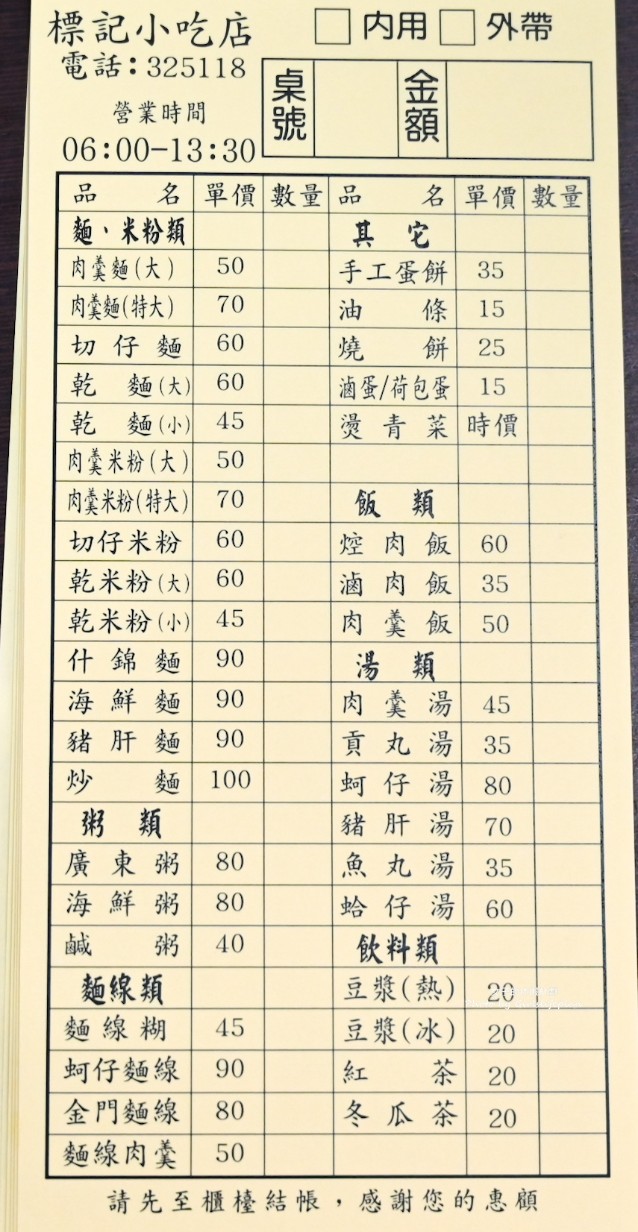 標記小吃店 □ 內用 □ 外帶
電話:325118
營業時間
06:00-13:30
桌號 金額
品名 單價 數量 品名 單價 數量
麵、米粉類 其它
肉羹麵(大) 50 手工蛋餅 35
肉羹麵(特大) 70 油條 15
切仔麵 60 燒餅 25
乾麵(大) 60 滷蛋/荷包蛋 15
乾麵(小) 45 燙青菜 時價
肉羹米粉(大) 50
肉羹米粉(特大) 70 飯類
切仔米粉 60 焢肉飯 60
乾米粉(大) 60 滷肉飯 35
乾米粉(小) 45 肉羹飯 50
什錦麵 90 湯類
海鮮麵 90 肉羹湯 45
豬肝麵 90 貢丸湯 35
炒麵 100 蚵仔湯 80
粥類 豬肝湯 70
廣東粥 80 魚丸湯 35
海鮮粥 80 蛤仔湯 60
鹹粥 40 飲料類
麵線類 豆漿(熱) 20
麵線糊 45 豆漿(冰) 20
蚵仔麵線 90 紅茶 20
金門麵線 80 冬瓜茶 20
麵線肉羹 50
請先至櫃檯結帳,感謝您的惠顧